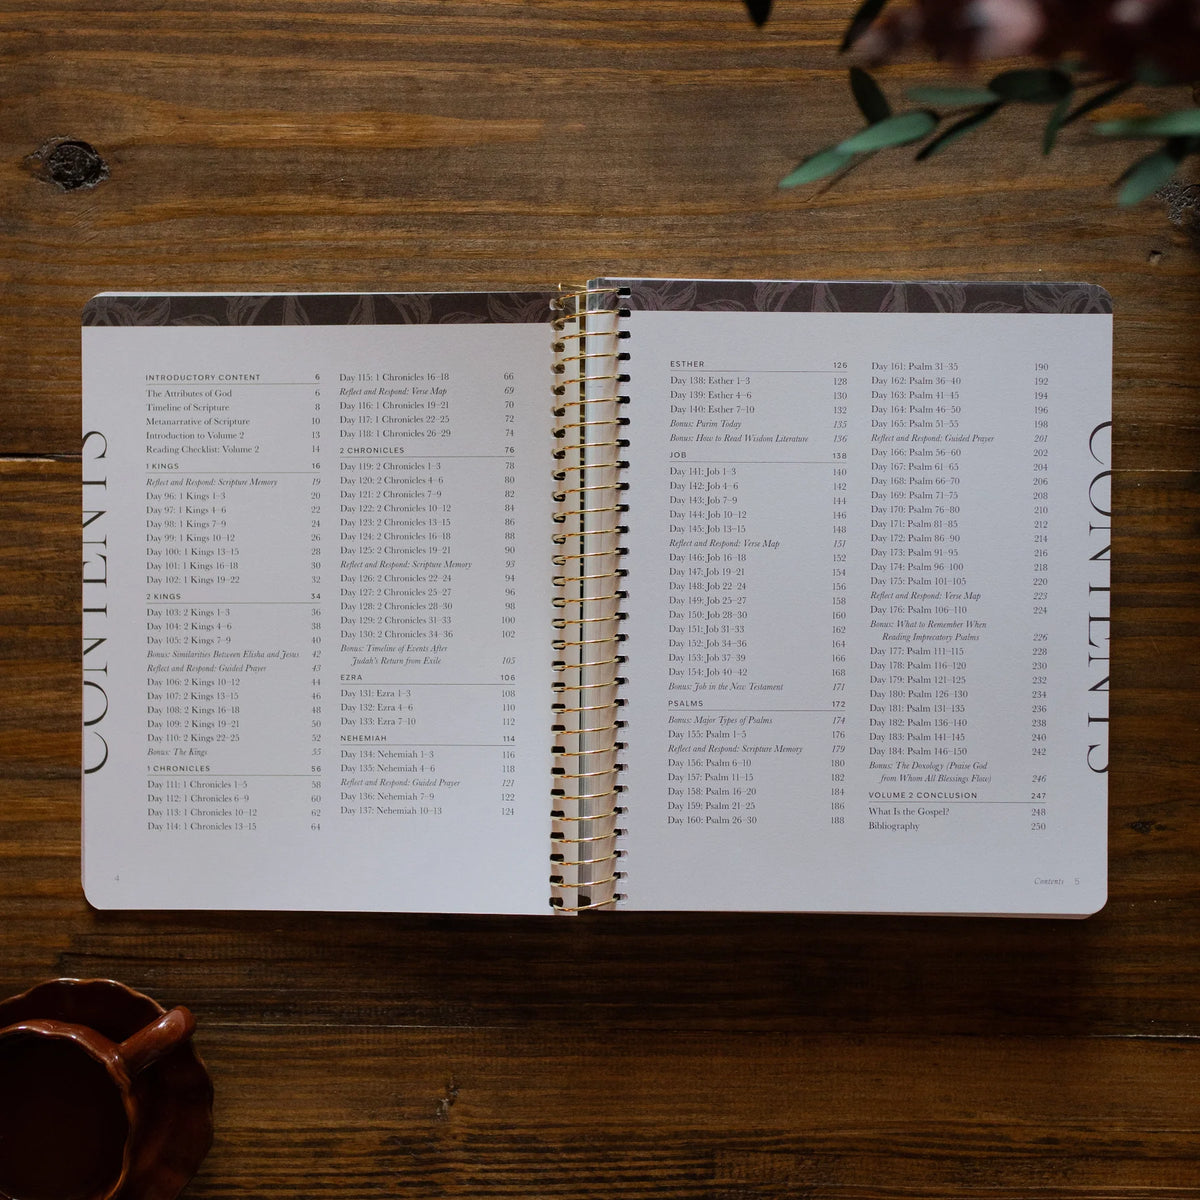 CONTENTS
INTRODUCTORY CONTENT 6
The Attributes of God 6
Timeline of Scripture 8
Metanarrative of Scripture 10
Introduction to Volume 2 13
Reading Checklist: Volume 2 14
1 KINGS 16
Reflect and Respond: Scripture Memory 19
Day 96: 1 Kings 1–3 20
Day 97: 1 Kings 4–6 22
Day 98: 1 Kings 7–9 24
Day 99: 1 Kings 10–12 26
Day 100: 1 Kings 13–15 28
Day 101: 1 Kings 16–18 30
Day 102: 1 Kings 19–22 32
2 KINGS 34
Day 103: 2 Kings 1–3 36
Day 104: 2 Kings 4–6 38
Day 105: 2 Kings 7–9 40
Bonus: Similarities Between Elisha and Jesus 42
Reflect and Respond: Guided Prayer 43
Day 106: 2 Kings 10–12 44
Day 107: 2 Kings 13–15 46
Day 108: 2 Kings 16–18 48
Day 109: 2 Kings 19–21 50
Day 110: 2 Kings 22–25 52
Bonus: The Kings 55
1 CHRONICLES 56
Day 111: 1 Chronicles 1–5 58
Day 112: 1 Chronicles 6–9 60
Day 113: 1 Chronicles 10–12 62
Day 114: 1 Chronicles 13–15 64
Day 115: 1 Chronicles 16–18 66
Reflect and Respond: Verse Map 69
Day 116: 1 Chronicles 19–21 70
Day 117: 1 Chronicles 22–25 72
Day 118: 1 Chronicles 26–29 74
2 CHRONICLES 76
Day 119: 2 Chronicles 1–3 78
Day 120: 2 Chronicles 4–6 80
Day 121: 2 Chronicles 7–9 82
Day 122: 2 Chronicles 10–12 84
Day 123: 2 Chronicles 13–15 86
Day 124: 2 Chronicles 16–18 88
Day 125: 2 Chronicles 19–21 90
Reflect and Respond: Scripture Memory 93
Day 126: 2 Chronicles 22–24 94
Day 127: 2 Chronicles 25–27 96
Day 128: 2 Chronicles 28–30 98
Day 129: 2 Chronicles 31–33 100
Day 130: 2 Chronicles 34–36 102
Bonus: Timeline of Events After
Judah's Return from Exile 105
EZRA 106
Day 131: Ezra 1–3 108
Day 132: Ezra 4–6 110
Day 133: Ezra 7–10 112
NEHEMIAH 114
Day 134: Nehemiah 1–3 116
Day 135: Nehemiah 4–6 118
Reflect and Respond: Guided Prayer 121
Day 136: Nehemiah 7–9 122
Day 137: Nehemiah 10–13 124
4
ESTHER 126
Day 138: Esther 1–3 128
Day 139: Esther 4–6 130
Day 140: Esther 7–10 132
Bonus: Purim Today 135
Bonus: How to Read Wisdom Literature 136
JOB 138
Day 141: Job 1–3 140
Day 142: Job 4–6 142
Day 143: Job 7–9 144
Day 144: Job 10–12 146
Day 145: Job 13–15 148
Reflect and Respond: Verse Map 151
Day 146: Job 16–18 152
Day 147: Job 19–21 154
Day 148: Job 22–24 156
Day 149: Job 25–27 158
Day 150: Job 28–30 160
Day 151: Job 31–33 162
Day 152: Job 34–36 164
Day 153: Job 37–39 166
Day 154: Job 40–42 168
Bonus: Job in the New Testament 171
PSALMS 172
Bonus: Major Types of Psalms 174
Day 155: Psalm 1–5 176
Reflect and Respond: Scripture Memory 179
Day 156: Psalm 6–10 180
Day 157: Psalm 11–15 182
Day 158: Psalm 16–20 184
Day 159: Psalm 21–25 186
Day 160: Psalm 26–30 188
Day 161: Psalm 31–35 190
Day 162: Psalm 36–40 192
Day 163: Psalm 41–45 194
Day 164: Psalm 46–50 196
Day 165: Psalm 51–55 198
Reflect and Respond: Guided Prayer 201
Day 166: Psalm 56–60 202
Day 167: Psalm 61–65 204
Day 168: Psalm 66–70 206
Day 169: Psalm 71–75 208
Day 170: Psalm 76–80 210
Day 171: Psalm 81–85 212
Day 172: Psalm 86–90 214
Day 173: Psalm 91–95 216
Day 174: Psalm 96–100 218
Day 175: Psalm 101–105 220
Reflect and Respond: Verse Map 223
Day 176: Psalm 106–110 224
Bonus: What to Remember When
Reading Imprecatory Psalms 226
Day 177: Psalm 111–115 228
Day 178: Psalm 116–120 230
Day 179: Psalm 121–125 232
Day 180: Psalm 126–130 234
Day 181: Psalm 131–135 236
Day 182: Psalm 136–140 238
Day 183: Psalm 141–145 240
Day 184: Psalm 146–150 242
Bonus: The Doxology (Praise God
from Whom All Blessings Flow) 246
VOLUME 2 CONCLUSION 247
What Is the Gospel? 248
Bibliography 250
Contents 5
CONTENTS